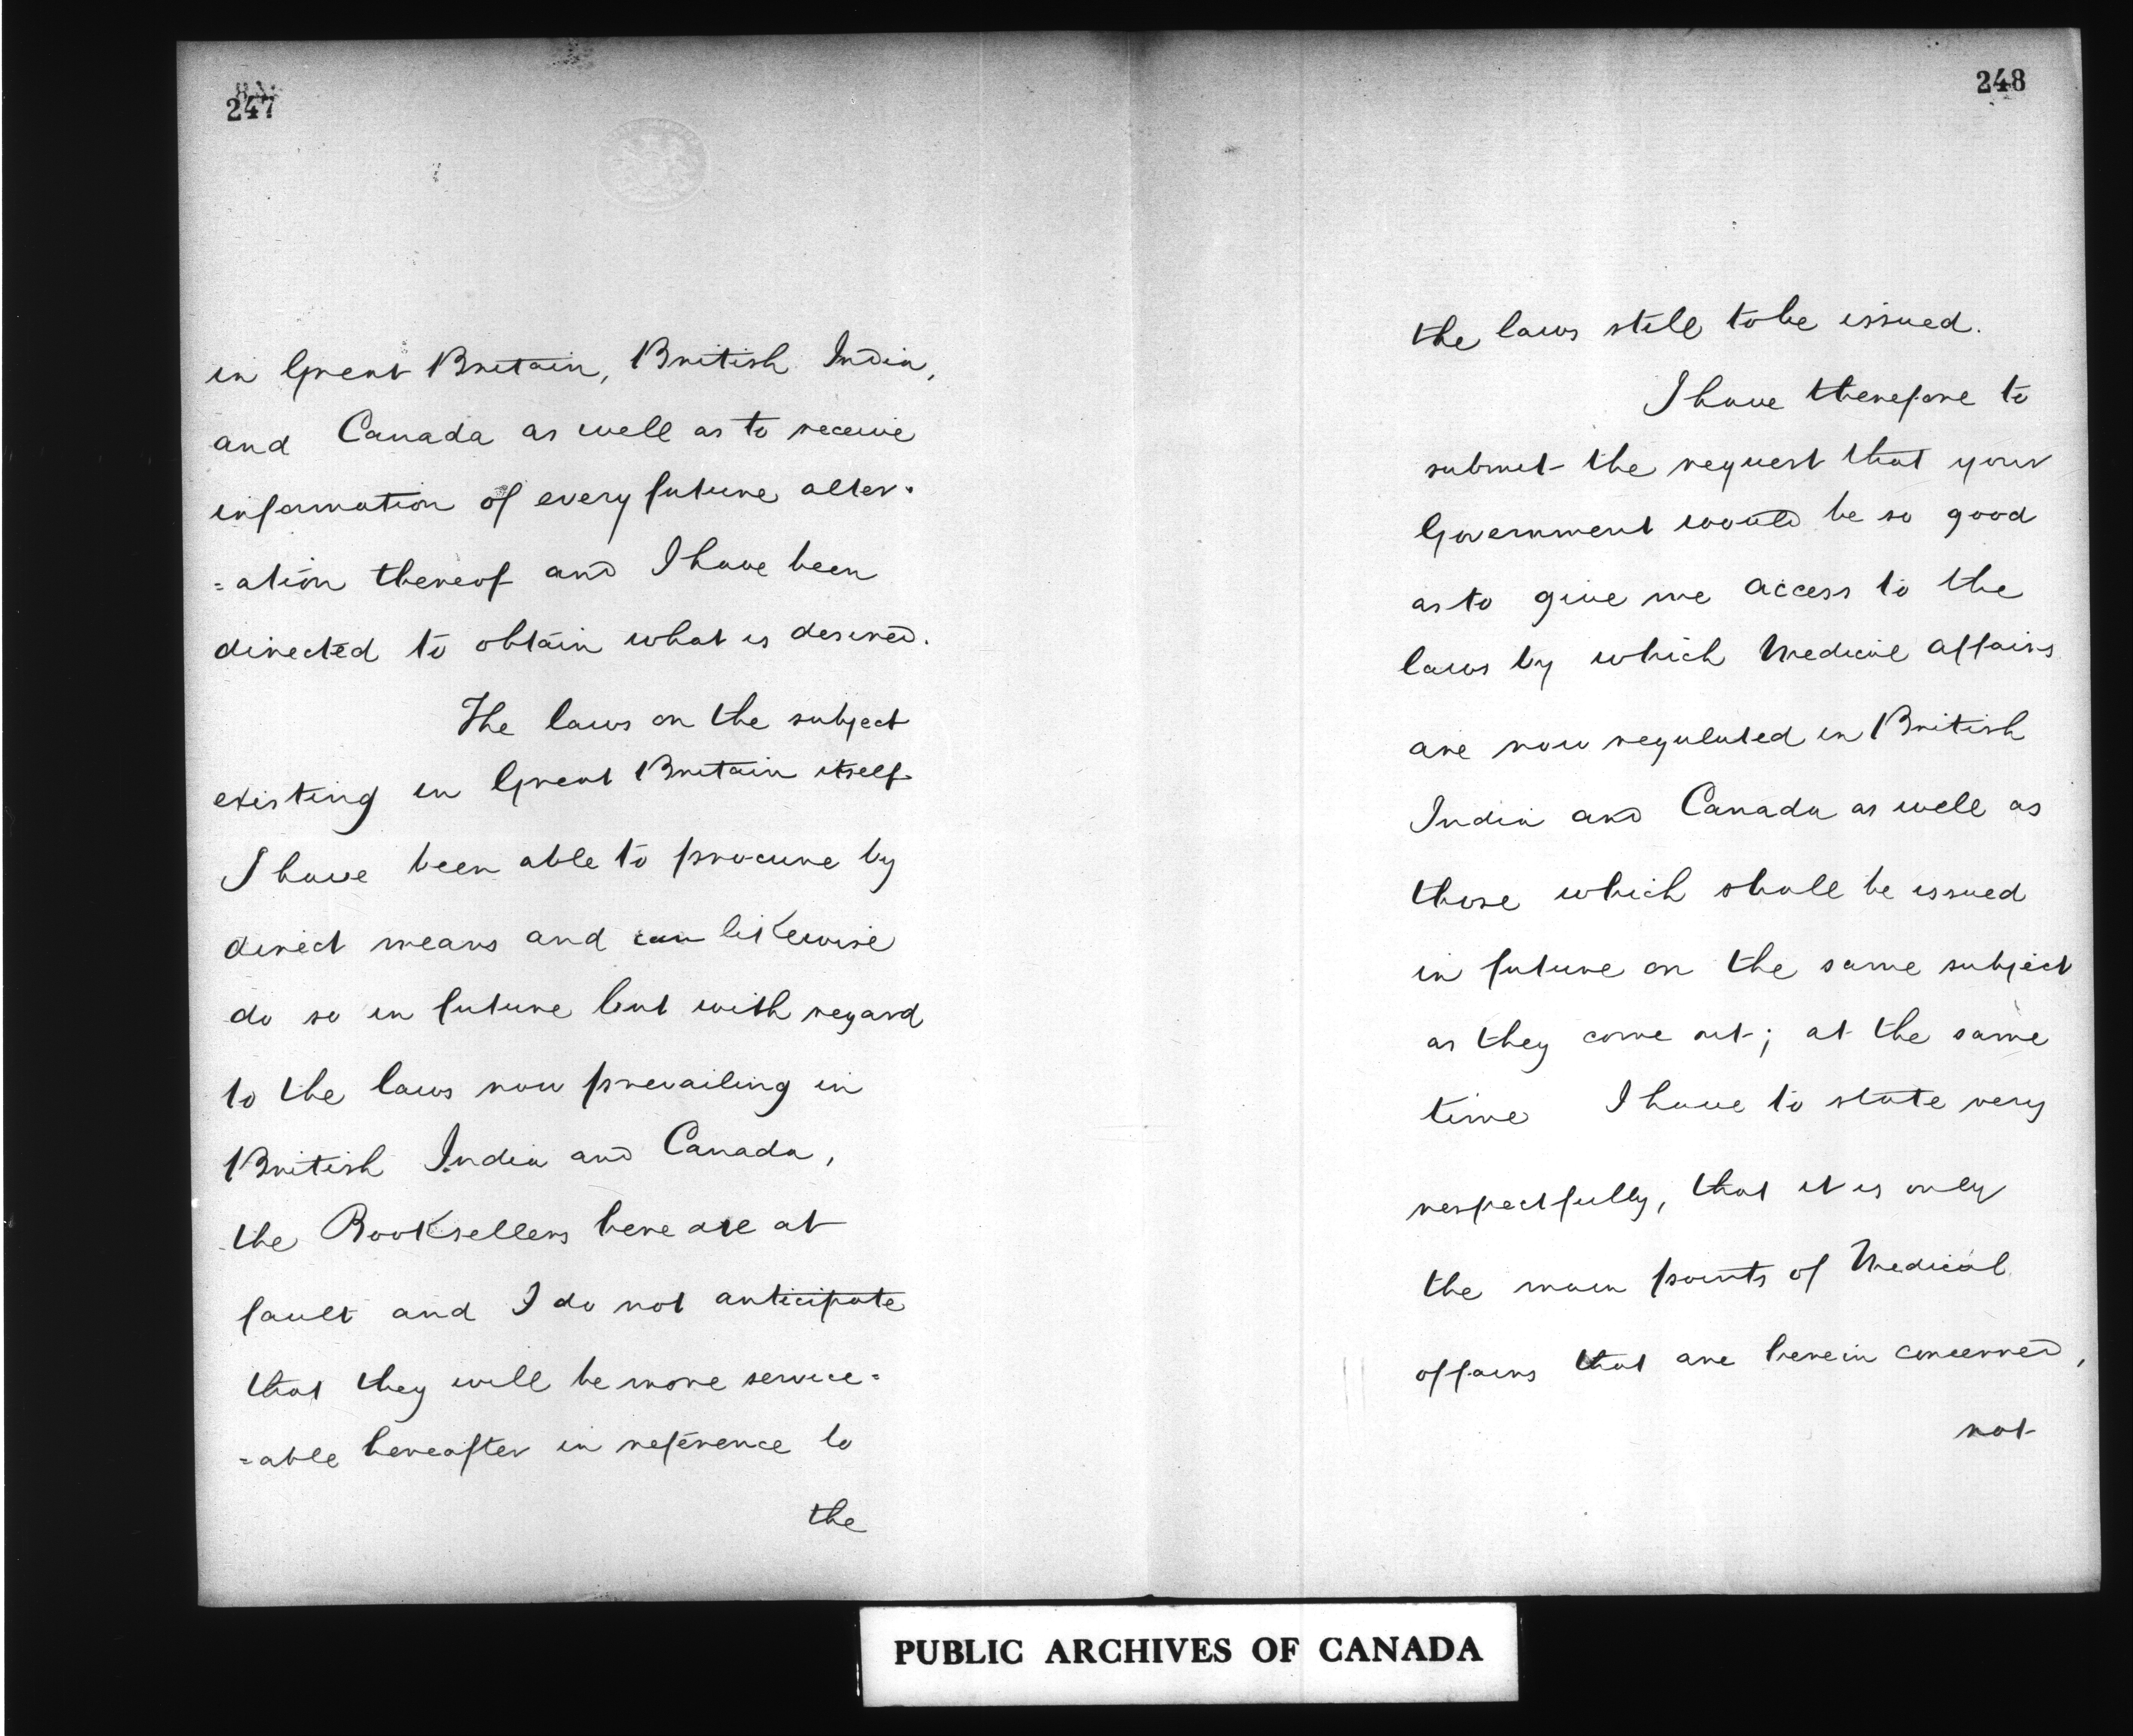 247
in Great Britain, British India,
and Canada as well as to receive
information of every future alter-
=ation thereof and I have been
directed to obtain what is desired.
The laws on the subject
existing in Great Britain itself
I have been able to procure by
direct means and can likewise
do so in future but with regard
to the laws now prevailing in
British India and Canada,
the Booksellers here are at
fault and I do not anticipate
that they will be more service=
=able hereafter in reference to
the
248
the laws still to be issued.
I have therefore to
submit the request that your
Government would be so good
as to give me access to the
laws by which Medical affairs
are now regulated in British
India and Canada as well as
those which shall be issued
in future on the same subject
as they come out; at the same
time I have to state very
respectfully, that it is only
the main points of Medical
affairs that are herein concerned,
not
PUBLIC ARCHIVES OF CANADA